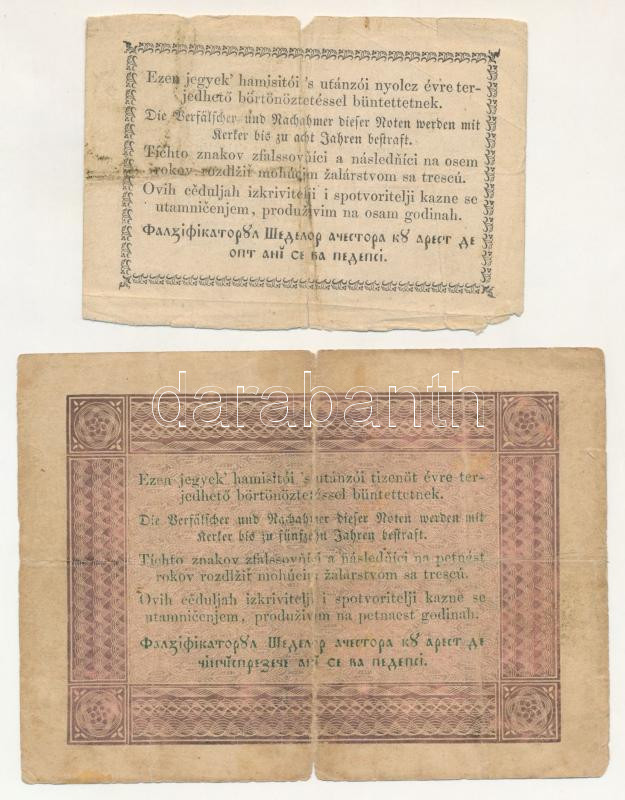 Ezen jegyek' hamisitói 's utánzói nyolcz évre ter-
jedhető börtönöztetéssel büntettetnek.
Die Verfälscher und Nachahmer dieser Noten werden mit
Kerker bis zu acht Jahren bestraft.
Tíchto znakov zfalssovňíci a následňíci na osem
rokov rozdlžiť mohúcim žalárstvom sa trescú.
Ovih cěduljah izkrivitelji i spotvoritelji kazne se
utamničenjem, produživim na osam godinah.
Фалꙁіфікаторꙋл Шеделор ачестора кꙋ арест де
опт анї се ва педепсі.
darabanth
Ezen jegyek' hamisitói 's utánzói tizenöt évre ter-
jedhető börtönöztetéssel büntettetnek.
Die Verfälscher und Nachahmer dieser Noten werden mit
Kerker bis zu fünfzehn Jahren bestraft.
Tíchto znakov zfalssovňíci a následňíci na petnást
rokov rozdlžiť mohúcim žalárstvom sa trescú.
Ovih cěduljah izkrivitelji i spotvoritelji kazne se
utamničenjem, produživim na petnaest godinah.
Фалꙁіфікаторꙋл Шеделор ачестора кꙋ арест де
чїнчїспрезече анї се ва педепсі.